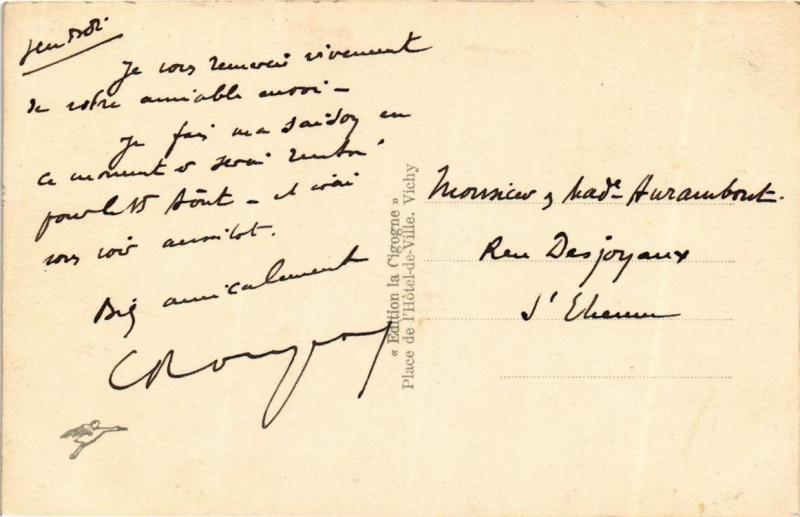 Je vous remercie vivement
de votre aimable envoi -
Je fais ma saison en
ce moment & serai
pour le 15 Août - et irai
vous voir aussitôt.
Bien amicalement
« Edition la Cigogne »
Place de l'Hôtel-de-Ville. Vichy
Monsieur & Made Aurambout.
Rue Desjoyaux
St Etienne